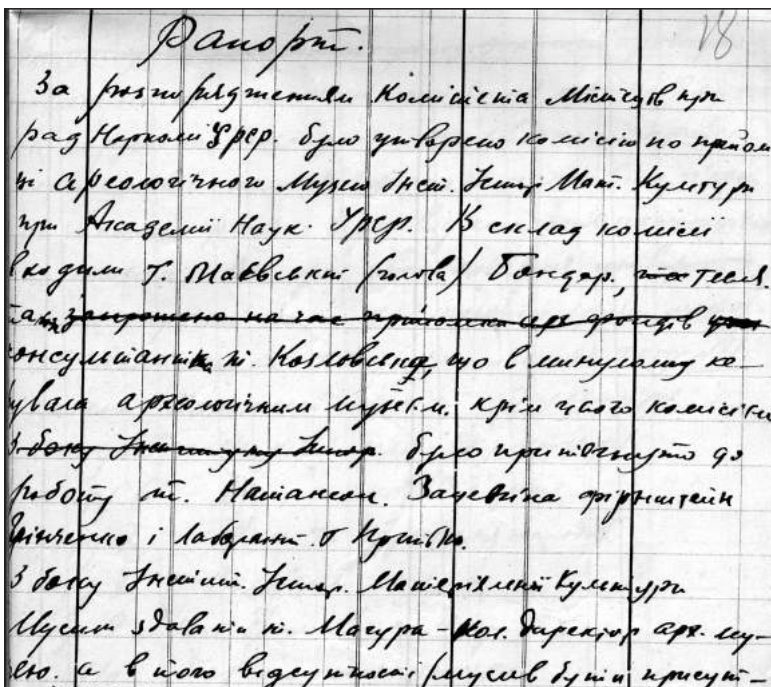 Рапорт. 18
За розпорядженням Комітета Мистецтв при
рад Наркомів УРСР. було утворено комісію по прийом
ці археологічного Музею Інст. Істор Мат. Культури
при Академії Наук УРСР. В склад комісії
входили т. Маєвський (голова) Бондар, Тесля.
та запрошено на час прийомки арх фондів
консультантка т. Козловська, що в минулому ке-
рувала археологічним музеєм. крім цього комісією
З боку Інституту Істор. було притягнуто до
роботи т. Натансон.
Грінченко і лаборант
З боку Інстит. Істор. Матеріяльної Культури
Мусили здавати т. Магура - директор арх. му-
зею. а в його відсутності мусив бути присут-